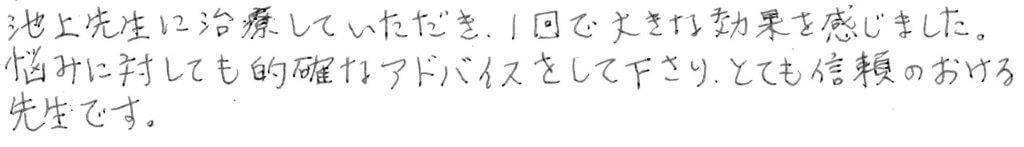 池上先生に治療していただき、1回で大きな効果を感じました。
悩みに対しても的確なアドバイスをして下さり、とても信頼のおける
先生です。